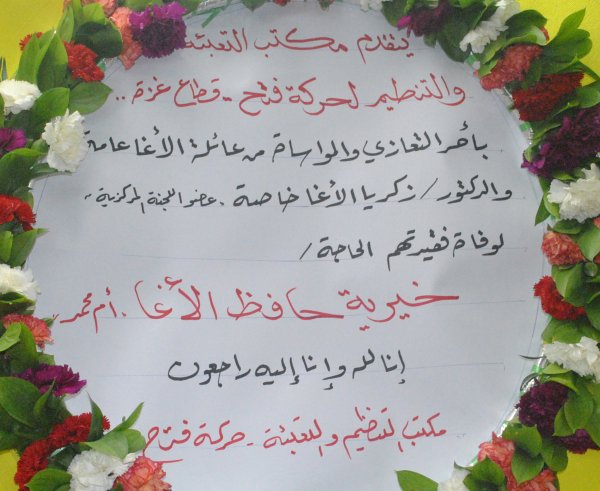 يتقدم مكتب التعبئة
والتنظيم لحركة فتح - قطاع غزة ..
بأحر التعازي والمواساة من عائلة الأغا عامة
والدكتور / زكريا الأغا خاصة . عضو اللجنة المركزية -
لوفاة فقيدتهم الحاجة /
خيرية حافظ الأغا . أم محمد
إنا لله وإنا إليه راجعون
مكتب التنظيم والتعبئة - حركة فتح